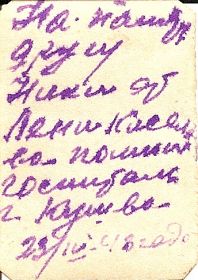 На. память
другу
Нине от
Лени Кисел
ва. помни
госпиталь
г Кушва.
23/III-43 года